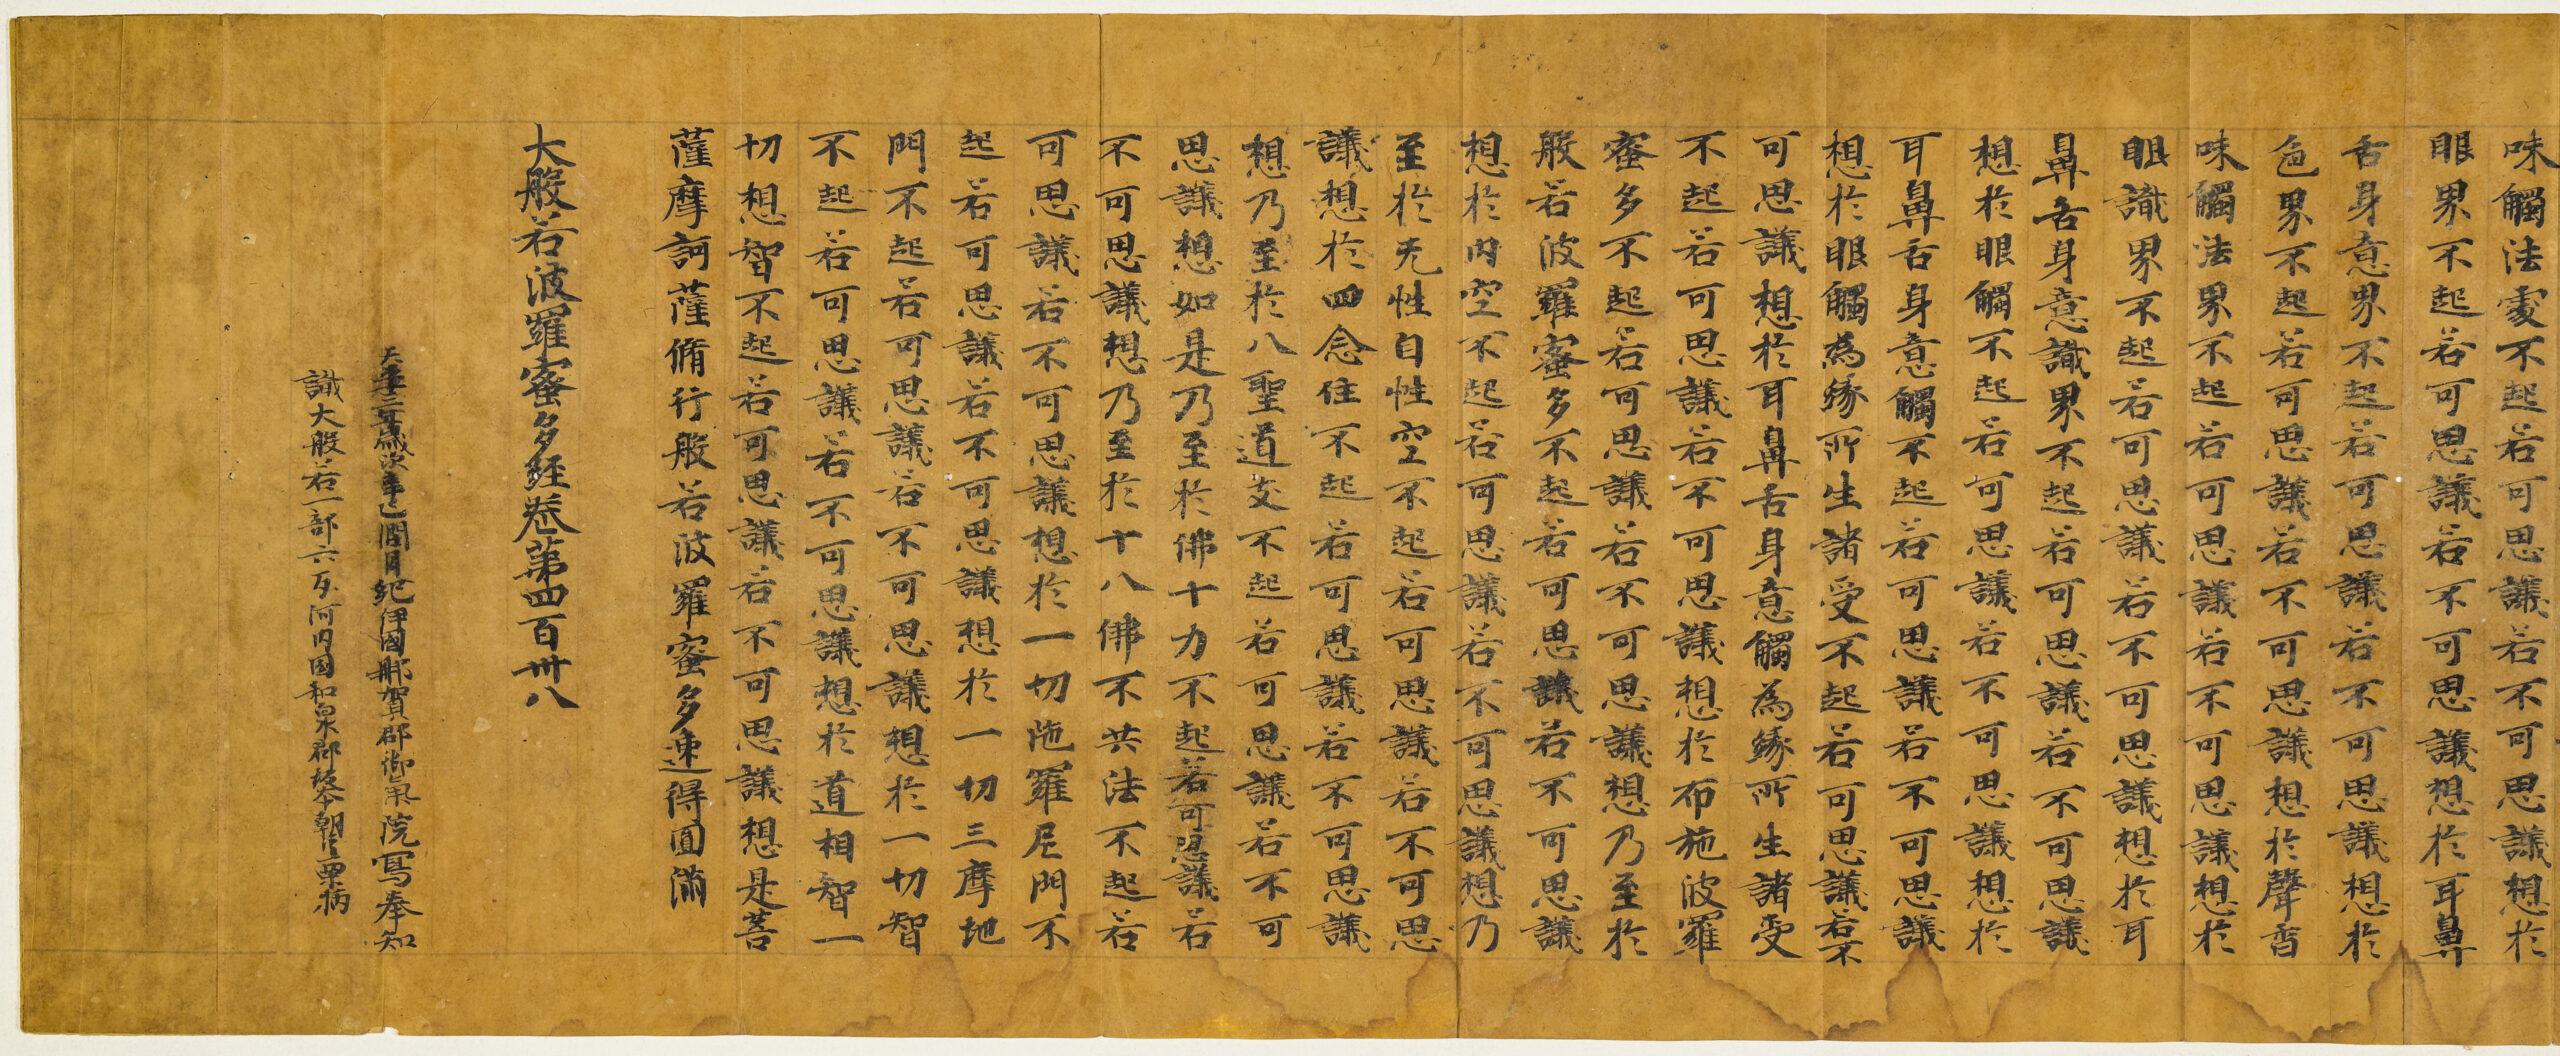 味觸法處不起若可思議若不可思議想於
眼界不起若可思議若不可思議想於耳鼻
舌身意界不起若可思議若不可思議想於
色界不起若可思議若不可思議想於聲香
味觸法界不起若可思議若不可思議想於
眼識界不起若可思議若不可思議想於耳
鼻舌身意識界不起若可思議若不可思議
想於眼觸不起若可思議若不可思議想於
耳鼻舌身意觸不起若可思議若不可思議
想於眼觸為緣所生諸受不起若可思議若不
可思議想於耳鼻舌身意觸為緣所生諸受
不起若可思議若不可思議想於布施波羅
蜜多不起若可思議若不可思議想乃至於
般若波羅蜜多不起若可思議若不可思議
想於內空不起若可思議若不可思議想乃
至於无性自性空不起若可思議若不可思
議想於四念住不起若可思議若不可思議
想乃至於八聖道支不起若可思議若不可
思議想如是乃至於佛十力不起若可思議若
不可思議想乃至於十八佛不共法不起若
可思議若不可思議想於一切陁羅尼門不
起若可思議若不可思議想於一切三摩地
門不起若可思議若不可思議想於一切智
不起若可思議若不可思議想於道相智一
切相智不起若可思議若不可思議想是菩
薩摩訶薩脩行般若波羅蜜多速得圓滿
大般若波羅蜜多経卷第四百卌八
天平十三年歳次辛巳潤月紀伊國那賀郡御氣院寫奉知
識大般若一部六百河內国和泉郡坂本朝臣栗柄